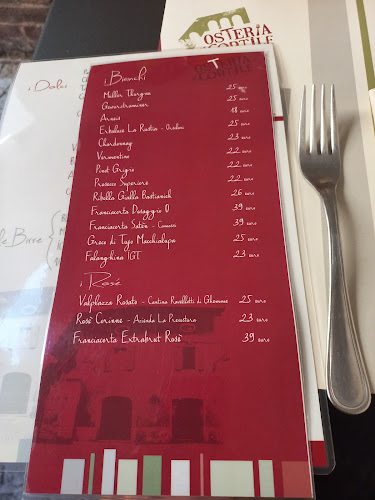 OSTERIA
CORTILE
i Bianchi
OSTERIA
CORTILE
Müller Thurgau 25 euro
Gewurtztraminer 25 euro
Arneis 18 euro
Erbaluce La Rustia - Orsolani 25 euro
Chardonnay 23 euro
Vermentino 22 euro
Pinot Grigio 22 euro
Prosecco Superiore 22 euro
Ribolla Gialla Bastianich 26 euro
Franciacorta Dosaggio 0 39 euro
Franciacorta Satèn - 39 euro
Greco di Tufo Macchialupa 25 euro
Falanghina IGT 23 euro
i Rosé
Valplazza Rosato - Cantina Ravelletti di 25 euro
Rosè Corinne - Azienda La 23 euro
Franciacorta Extrabrut Rosè 39 euro
i Dolci
le Birre